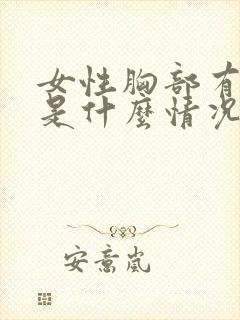 女性胸部有
是什麼情况
安意嵐